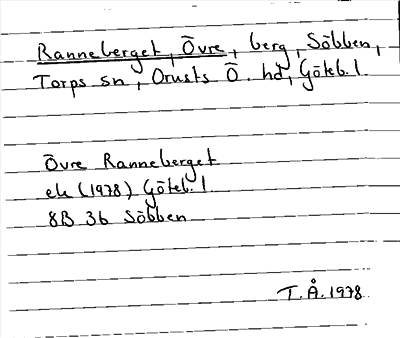 Ranneberget, Övre, berg, Söbben,
Torps sn, Orusts Ö. hd, Göteb. l.
Övre Ranneberget
ek (1978) Göteb. l.
8B 3b Söbben
T.Å. 1978